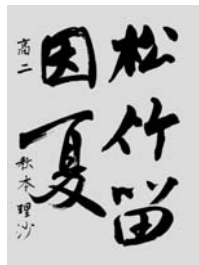 松竹留
因夏
高二 秋本理沙